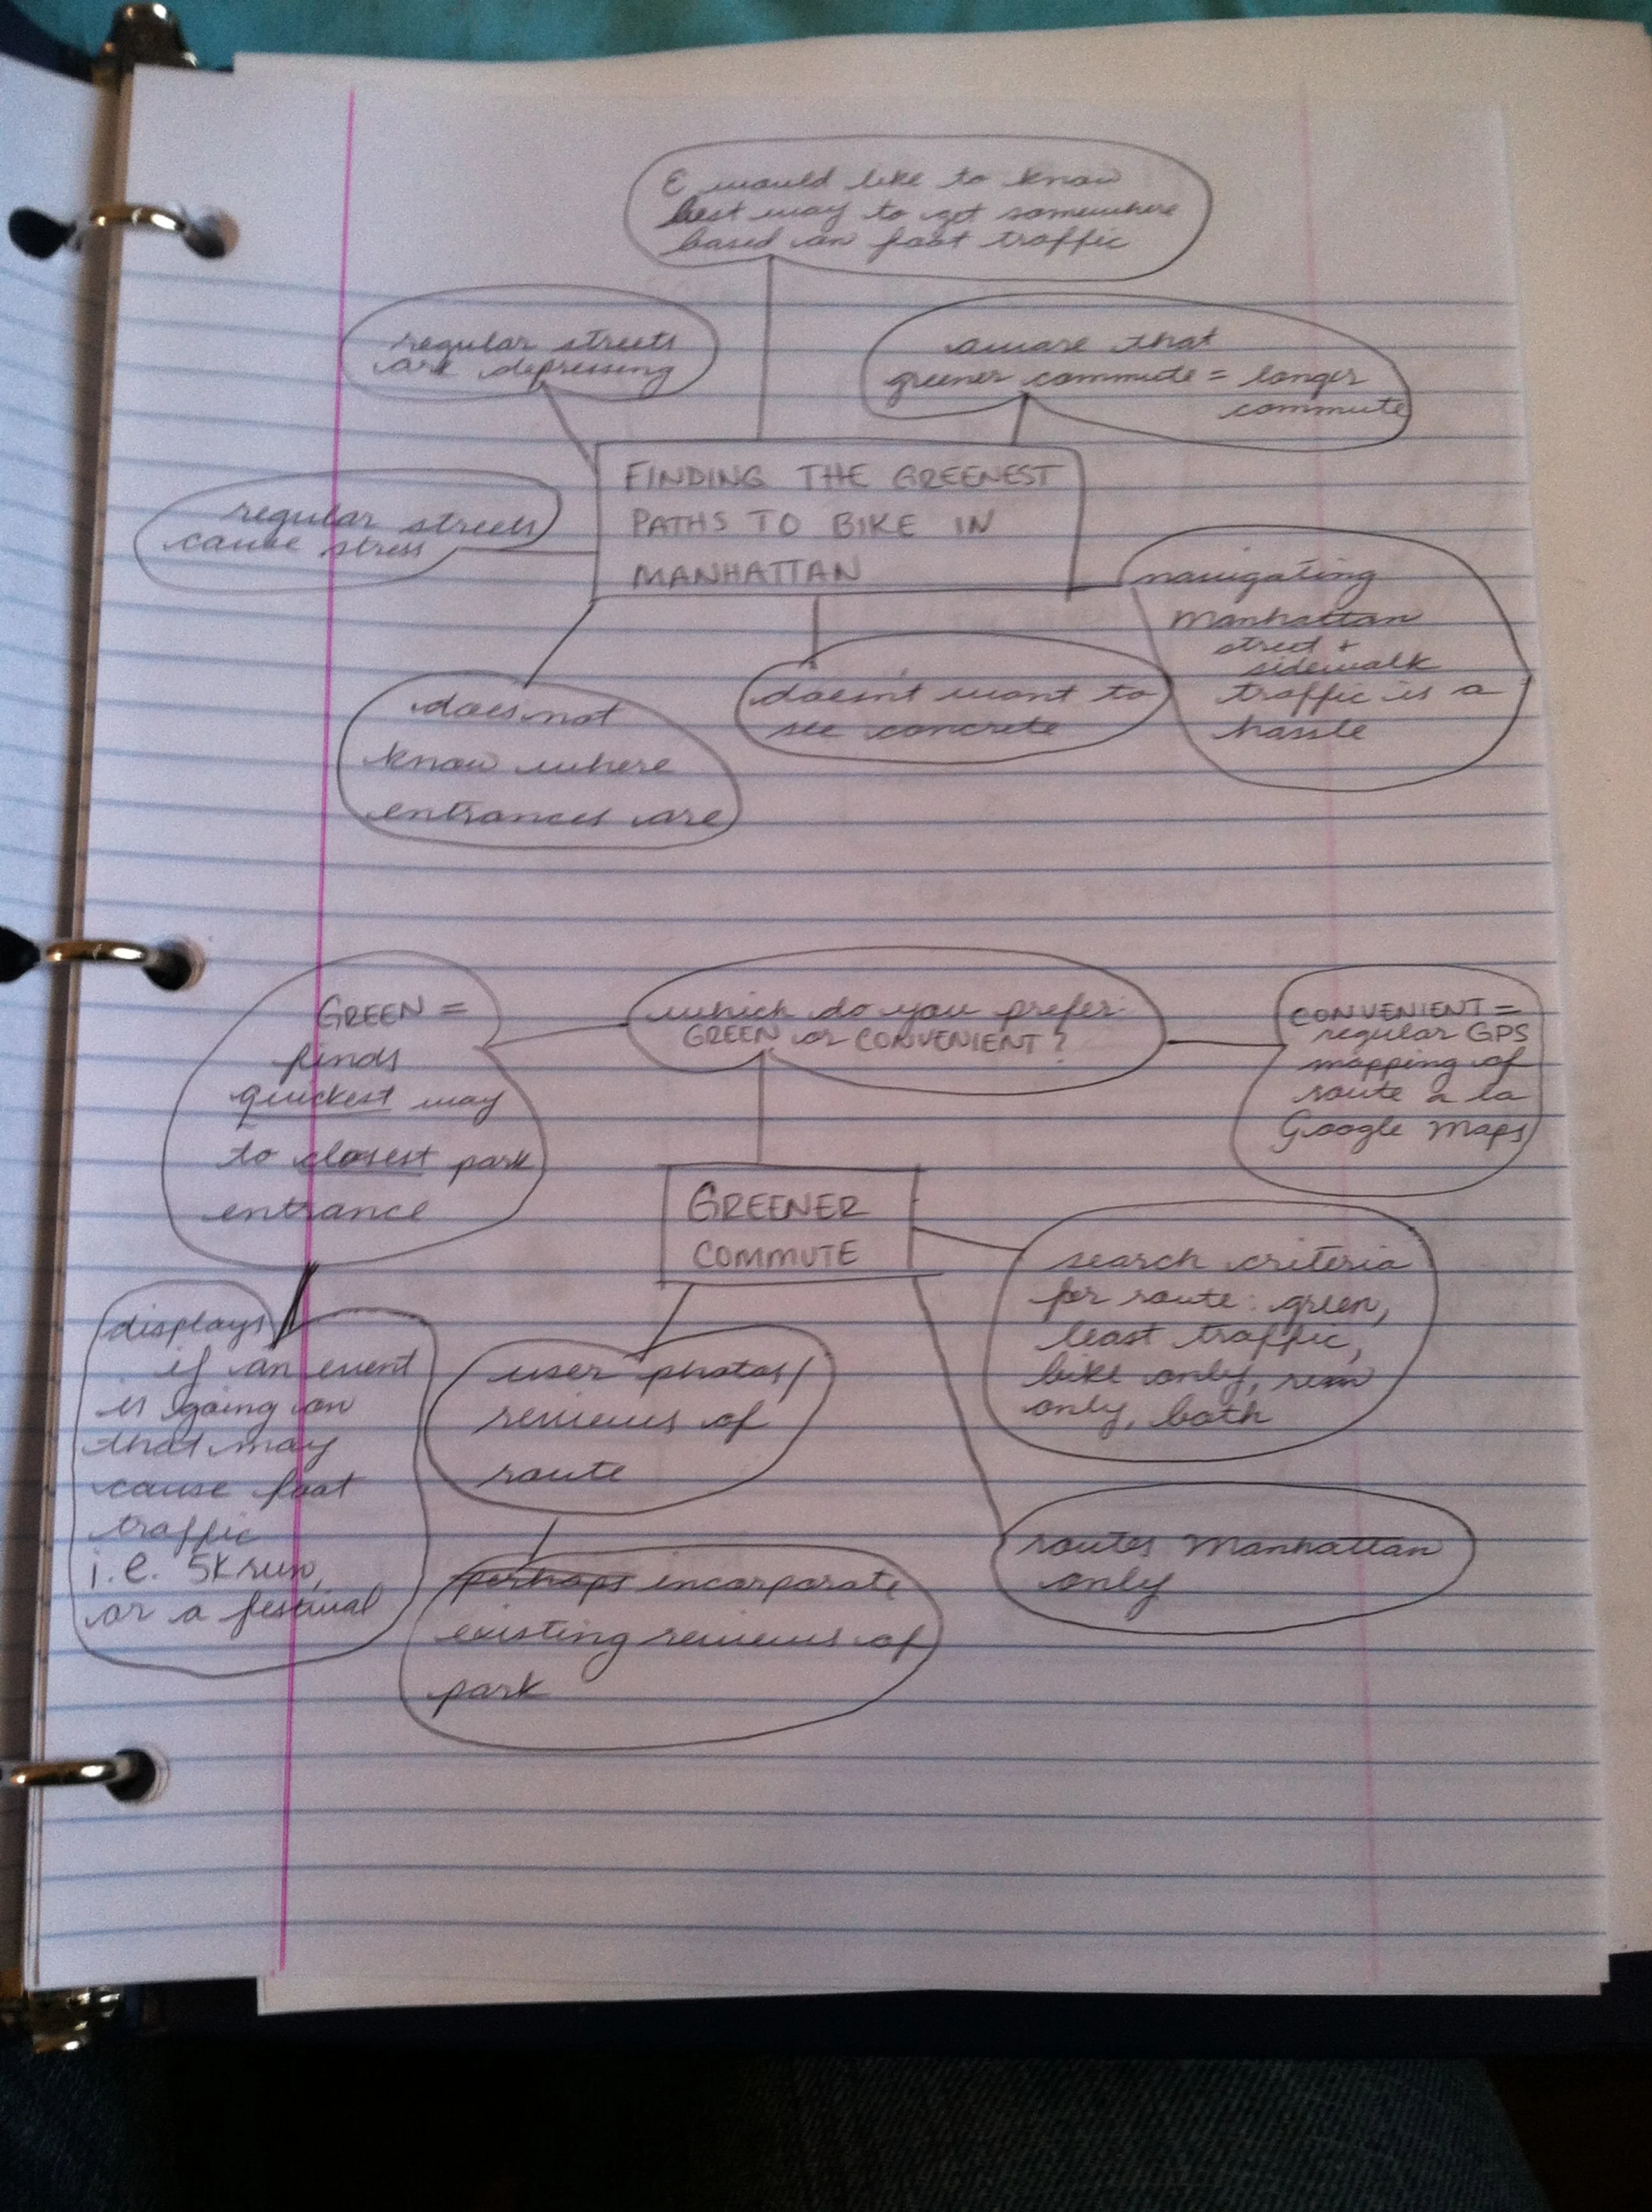 E would like to know
best way to get somewhere
based on foot traffic
regular streets
are depressing
aware that
greener commute = longer
commute
FINDING THE GREENEST
PATHS TO BIKE IN
MANHATTAN
regular streets
cause stress
navigating
Manhattan
street +
sidewalk
traffic is a
hassle
does not
know where
entrances are
doesn't want to
see concrete
GREEN =
finds
quickest way
to closest park
entrance
which do you prefer:
GREEN or CONVENIENT?
CONVENIENT =
regular GPS
mapping of
route a la
Google Maps
GREENER
COMMUTE
search criteria
for route: green,
least traffic,
bike only, run
only, both
displays
if an event
is going on
that may
cause foot
traffic
i.e. 5K run,
or a festival
user photos/
reviews of
route
perhaps incorporate
existing reviews of
park
routes Manhattan
only